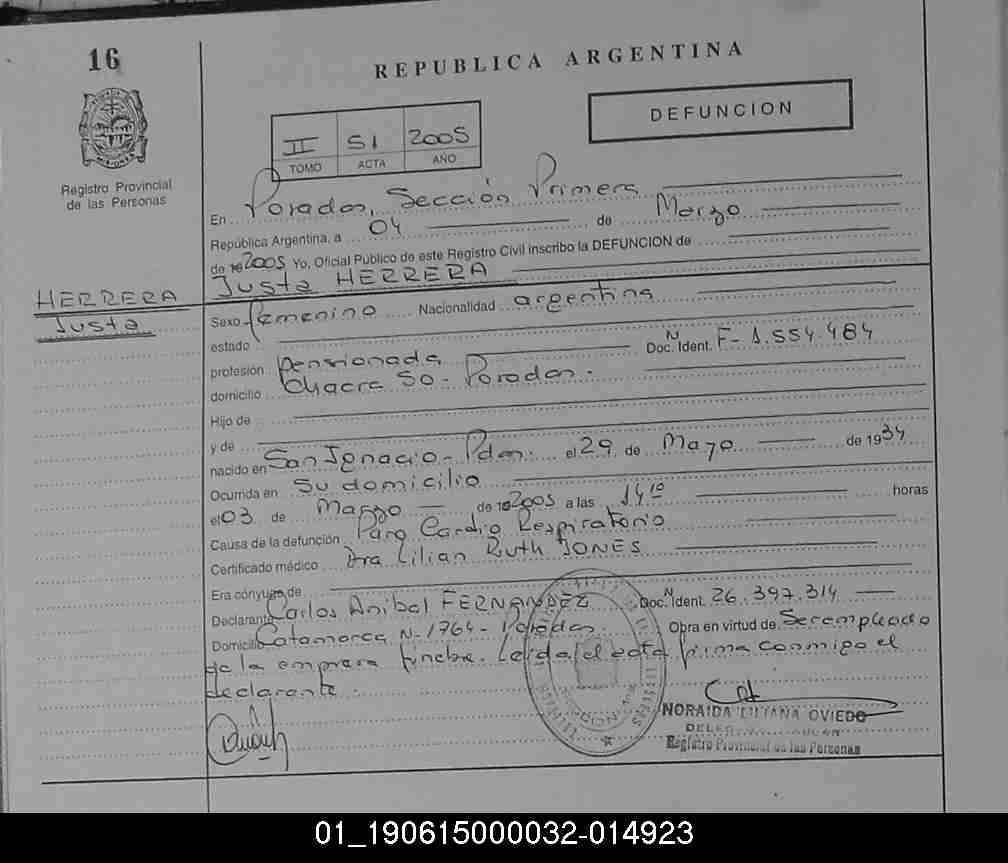 16
REPUBLICA ARGENTINA
DEFUNCION
II 51 2005
TOMO ACTA AÑO
Registro Provincial
de las Personas
En Posadas, Sección Primera
República Argentina, a 04 de Marzo
de 2005 Yo, Oficial Público de este Registro Civil inscribo la DEFUNCION de
Justa HERRERA
HERRERA
Justa
Sexo femenino Nacionalidad argentina
estado
profesión pensionada Doc. Ident. N F-1.554.484
domicilio Chacra 50 - Posadas.
Hijo de
y de
nacido en San Ignacio - Pdas. el 29 de Mayo de 1934
Ocurrida en Su domicilio
el 03 de Marzo de 2005 a las 14 10 horas
Causa de la defunción Paro Cardio Respiratorio
Certificado médico Dra Lilian Ruth JONES
Era cónyuge de
Declarante Carlos Anibal FERNANDEZ Doc. Ident. N 26.397.314
Domicilio Catamarca N-1764- Posadas. Obra en virtud de Ser empleado
de la empresa fúnebre. Leída el acta firma conmigo el
declarante.
NORAIDA LILIANA OVIEDO
Registro Provincial de las Personas
01_190615000032-014923